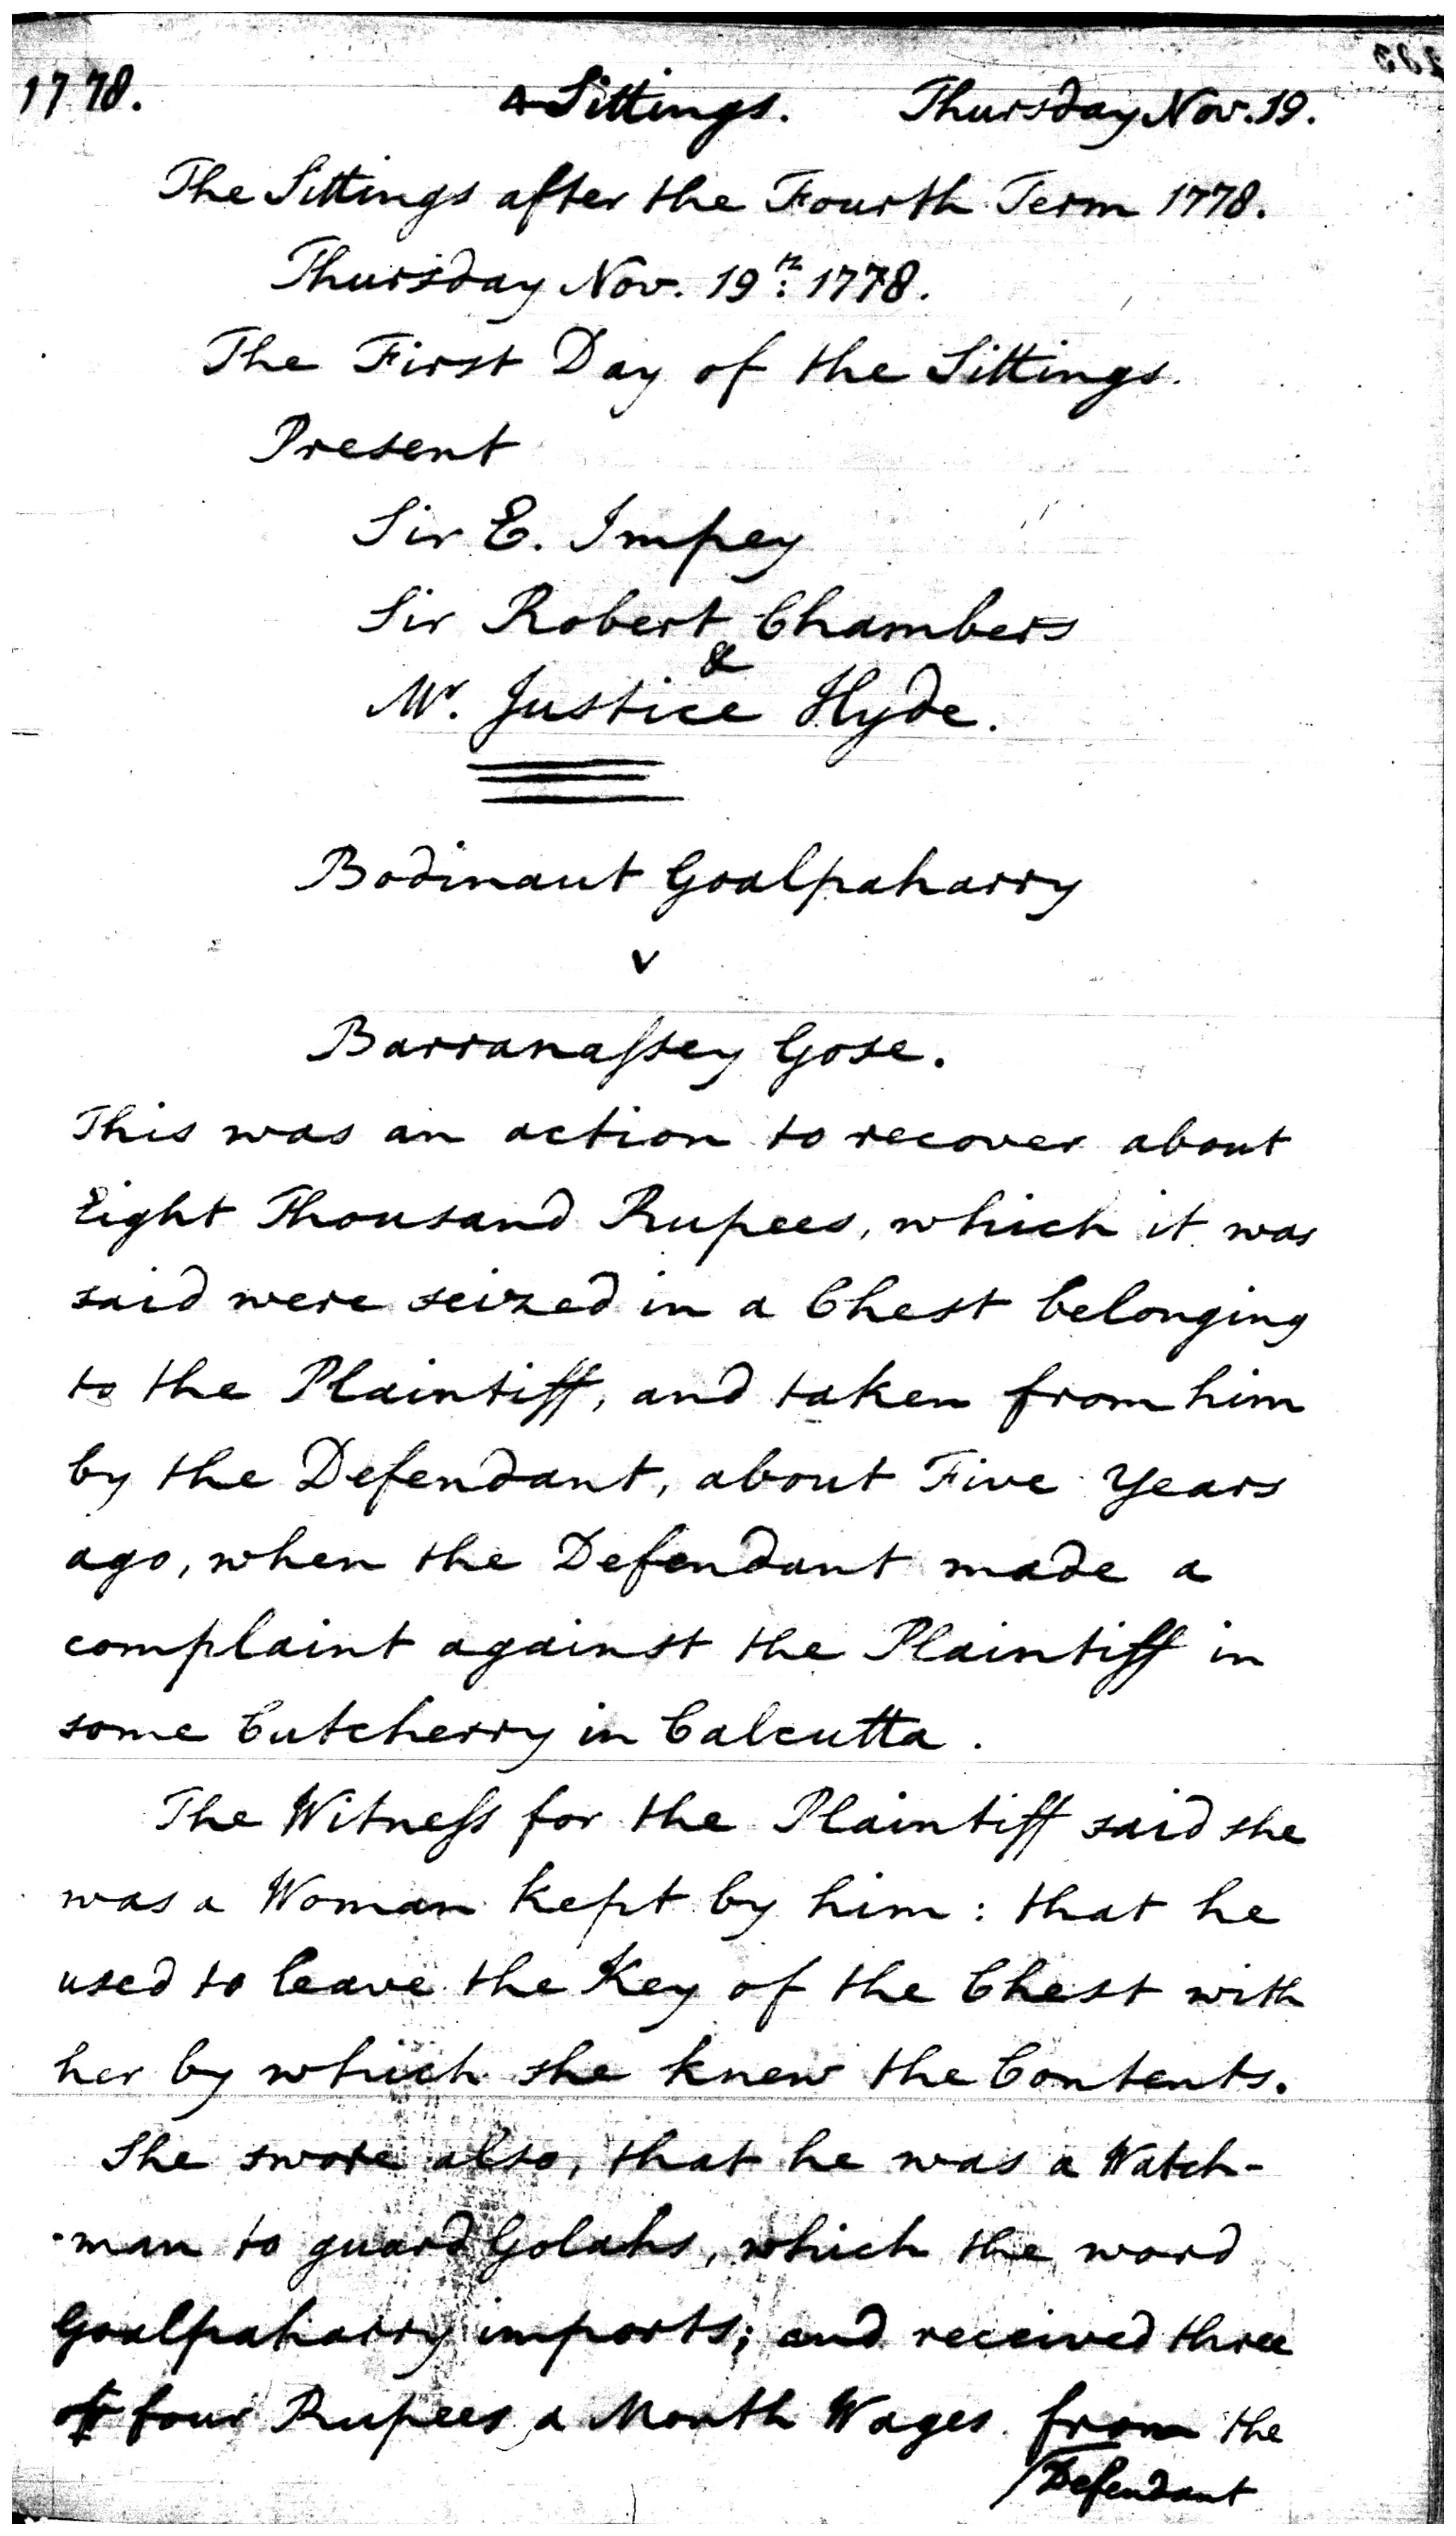 1778. Sittings. Thursday Nov. 19.
The Sittings after the Fourth Term 1778.
Thursday Nov. 19th: 1778.
The First Day of the Sittings.
Present
Sir E. Impey
Sir Robert Chambers
&
Mr. Justice Hyde.
Bodinaut Goalpaharry
v
Barranaſsey Gose.
This was an action to recover about
Eight Thousand Rupees, which it was
said were seized in a Chest belonging
to the Plaintiff, and taken from him
by the Defendant, about Five Years
ago, when the Defendant made a
complaint against the Plaintiff in
some Cutcherry in Calcutta.
The Witneſs for the Plaintiff said she
was a Woman kept by him: that he
used to leave the Key of the Chest with
her by which she knew the Contents.
She swore also, that he was a Watch-
-man to guard Golahs, which the word
Goalpaharry imports; and received three
or four Rupees a Month Wages from the
/Defendant